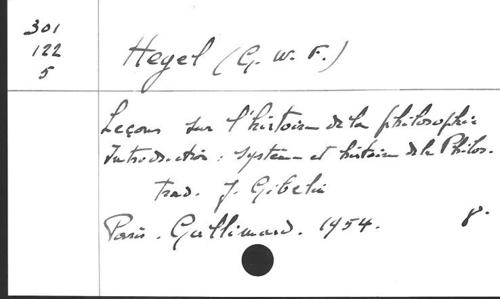 301
122
5
Hegel (G. W. F.)
Leçons sur l'histoire de la philosophie
Introduction : système et histoire de la Philos.
trad. J. Gibelin
Paris. Gallimard. 1954. 8°.